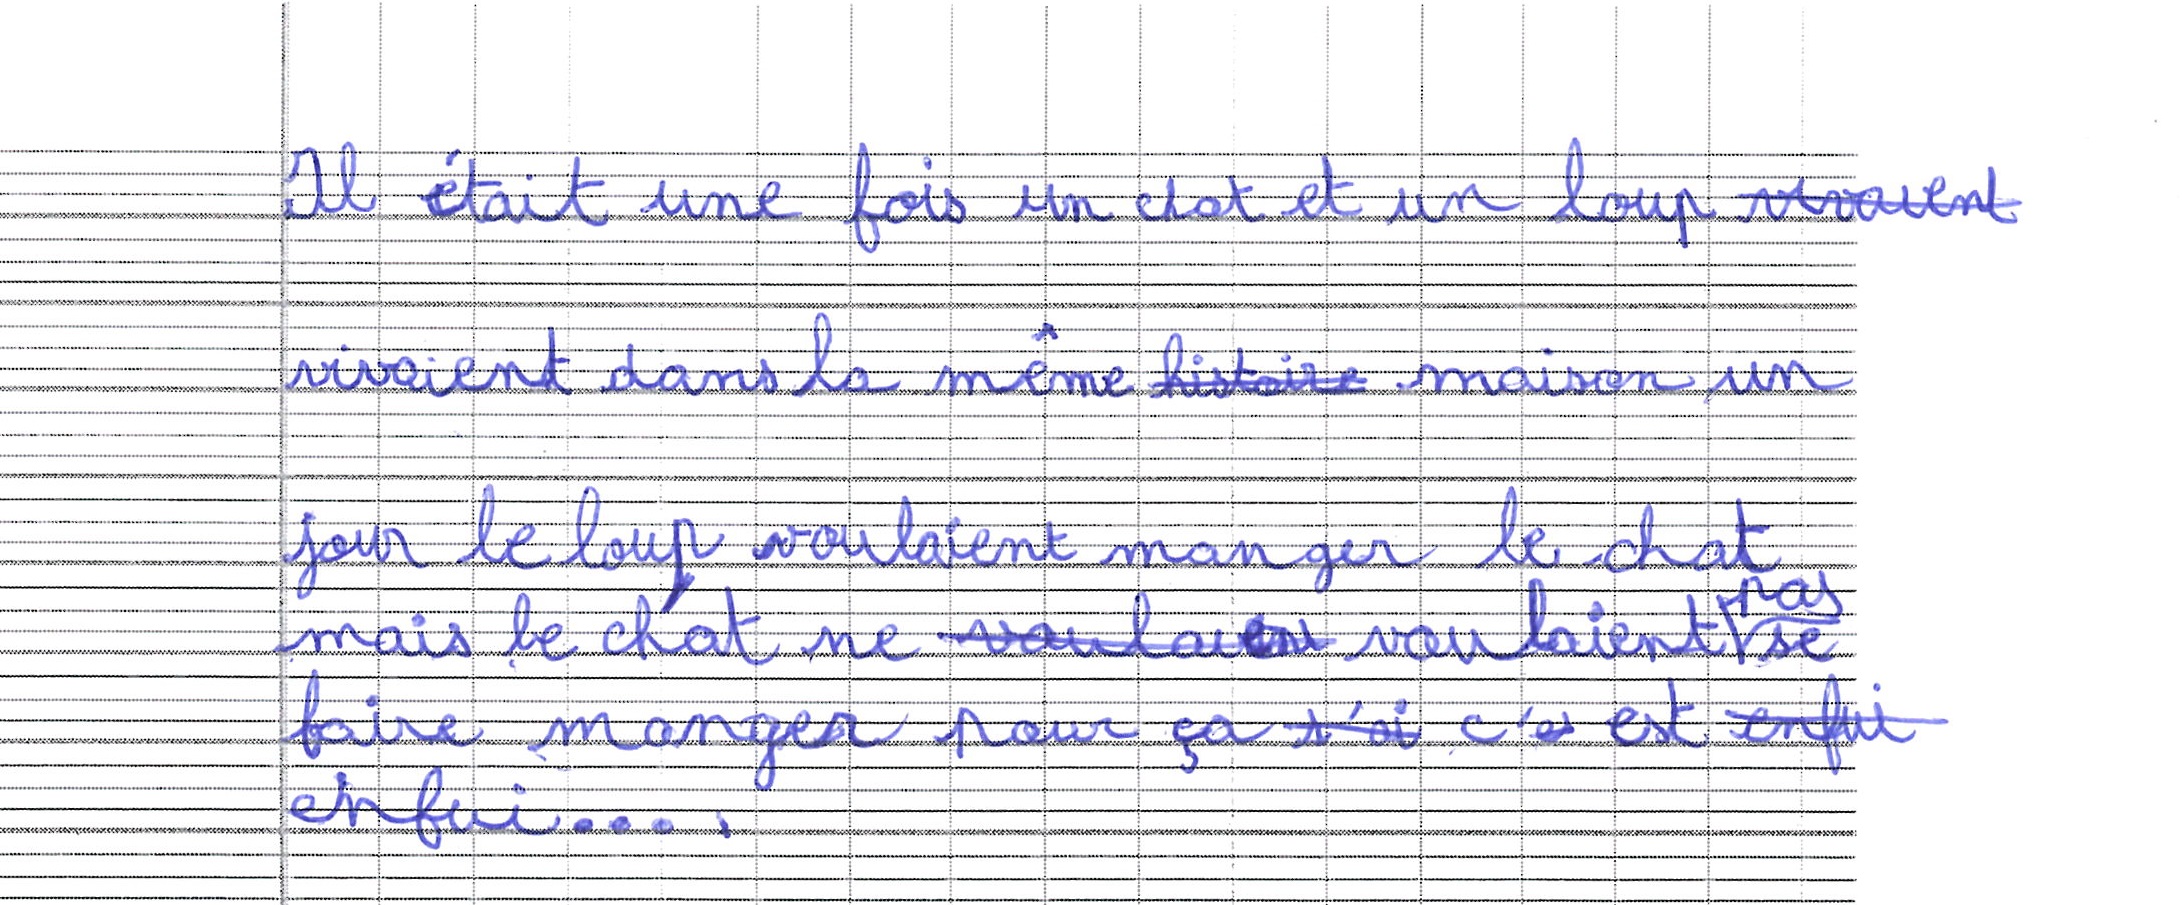 Il était une fois un chat et un loup vivaient
vivaient dans la même histoire maison un
jour le loup voulaient manger le chat
mais le chat ne voulaien voulaient pas se
faire manger pour ça s'ai c'es est enfui
enfui....